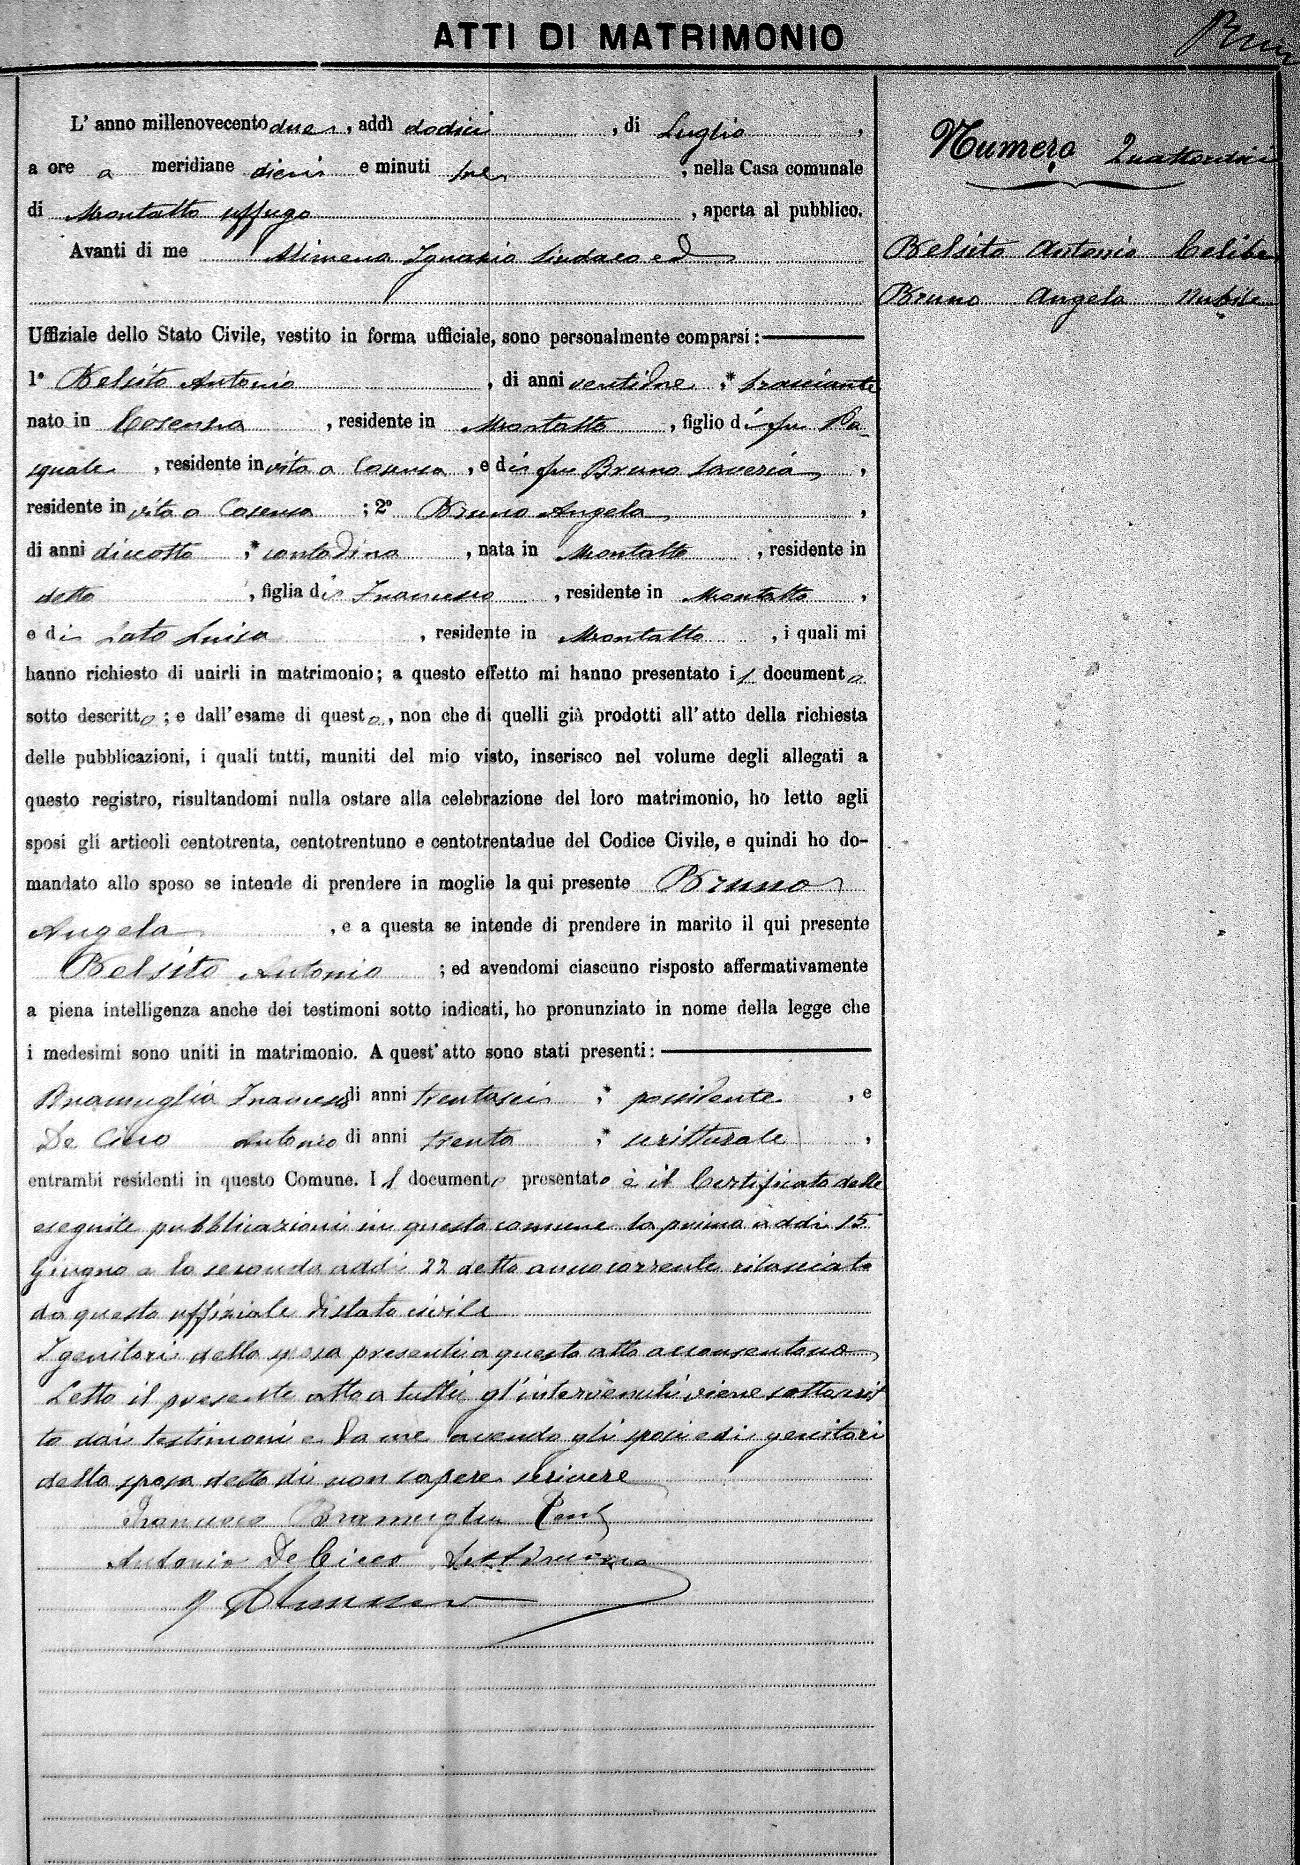 ATTI DI MATRIMONIO
L' anno millenovecento due, addì dodici, di Luglio,
a ore a meridiane dieci e minuti tre, nella Casa comunale
di Montalto Uffugo, aperta al pubblico.
Avanti di me Alimena Ignazio Sindaco ed
Uffiziale dello Stato Civile, vestito in forma ufficiale, sono personalmente comparsi:
1º Belsito Antonio, di anni ventidue, * bracciante
nato in Cosenza, residente in Montalto, figlio di fu Pa-
squale, residente in vita a Cosenza, e di fu Bruno Saveria,
residente in vita a Cosenza; 2º Bruno Angela,
di anni diciotto, * contadina, nata in Montalto, residente in
detto, figlia di Francesco, residente in Montalto,
e di Lato Luisa, residente in Montalto, i quali mi
hanno richiesto di unirli in matrimonio; a questo effetto mi hanno presentato il documento
sotto descritto; e dall'esame di questo, non che di quelli già prodotti all'atto della richiesta
delle pubblicazioni, i quali tutti, muniti del mio visto, inserisco nel volume degli allegati a
questo registro, risultandomi nulla ostare alla celebrazione del loro matrimonio, ho letto agli
sposi gli articoli centotrenta, centotrentuno e centotrentadue del Codice Civile, e quindi ho do-
mandato allo sposo se intende di prendere in moglie la qui presente Bruno
Angela, e a questa se intende di prendere in marito il qui presente
Belsito Antonio; ed avendomi ciascuno risposto affermativamente
a piena intelligenza anche dei testimoni sotto indicati, ho pronunziato in nome della legge che
i medesimi sono uniti in matrimonio. A quest'atto sono stati presenti:
Bramuglia Francesco di anni trentasei, * possidente, e
De Cicco Antonio di anni trenta, * scritturale,
entrambi residenti in questo Comune. Il documento presentato è il Certificato delle
eseguite pubblicazioni in questo comune la prima addì 15
Giugno e la seconda addì 22 detto anno corrente rilasciato
da questo uffiziale di stato civile
I genitori della sposa presenti a questo atto acconsentono
Letto il presente atto a tutti gl'intervenuti viene sottoscrit
to dai testimoni e da me avendo gli sposi ed i genitori
della sposa detto di non sapere scrivere
Francesco Bramuglia Test
Antonio De Cicco Testimone
I Alimena
Numero Quattordici
Belsito Antonio Celibe
Bruno Angela Nubile